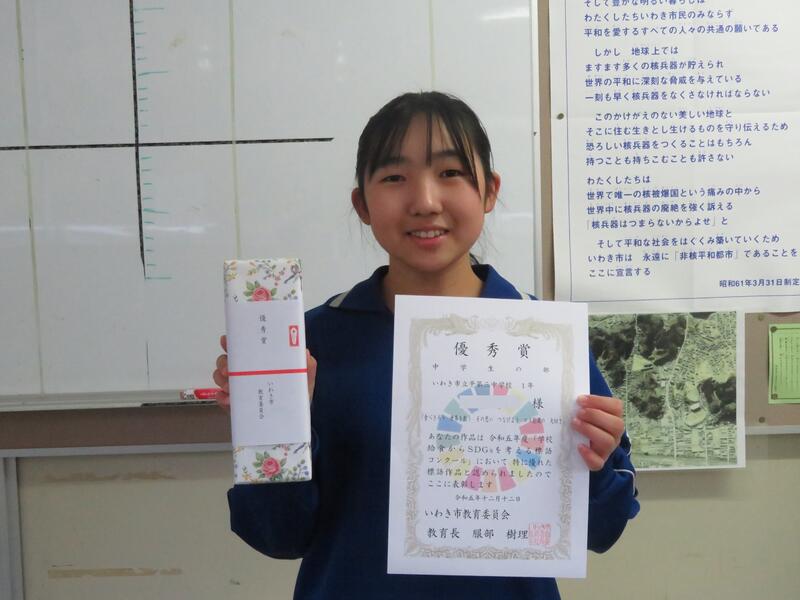 そして豊かな明るい暮らしは
わたくしたちいわき市民のみならず
平和を愛するすべての人々の共通の願いである
しかし 地球上では
ますます多くの核兵器が貯えられ
世界の平和に深刻な脅威を与えている
一刻も早く核兵器をなくさなければならない
このかけがえのない美しい地球と
そこに住む生きとし生けるものを守り伝えるため
恐ろしい核兵器をつくることはもちろん
持つことも持ちこむことも許さない
わたくしたちは
世界で唯一の核被爆国という痛みの中から
世界中に核兵器の廃絶を強く訴える
「核兵器はつまらないからよせ」と
そして平和な社会をはぐくみ築いていくため
いわき市は 永遠に「非核平和都市」であることを
ここに宣言する
昭和61年3月31日制定
優秀賞
いわき市
教育委員会
優秀賞
中学生の部
いわき市立平第二中学校 1年
様
あなたの作品は 令和五年度「学校
給食からSDGsを考える標語
コンクール」において 特に優れた
標語作品と認められましたので
ここに表彰します
令和五年十二月十二日
いわき市教育委員会
教育長 服部 樹理